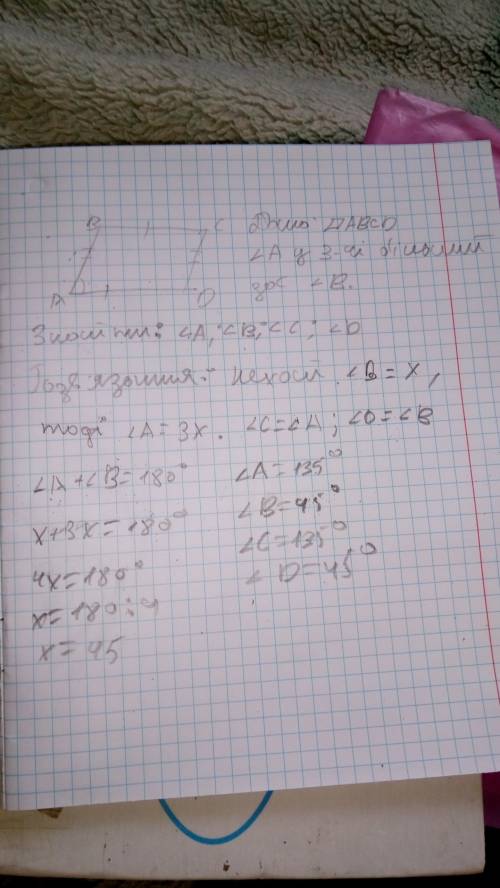 B C
A D
Дано: ▱ABCD
∠A у 3-чі більший
∠B.
Знайти: ∠A, ∠B, ∠C; ∠D
Розв'язання: Нехай ∠B = x,
тоді ∠A = 3x. ∠C = ∠A; ∠D = ∠B
∠A + ∠B = 180°
x + 3x = 180°
4x = 180°
x = 180 : 4
x = 45
∠A = 135°
∠B = 45°
∠C = 135°
∠D = 45°